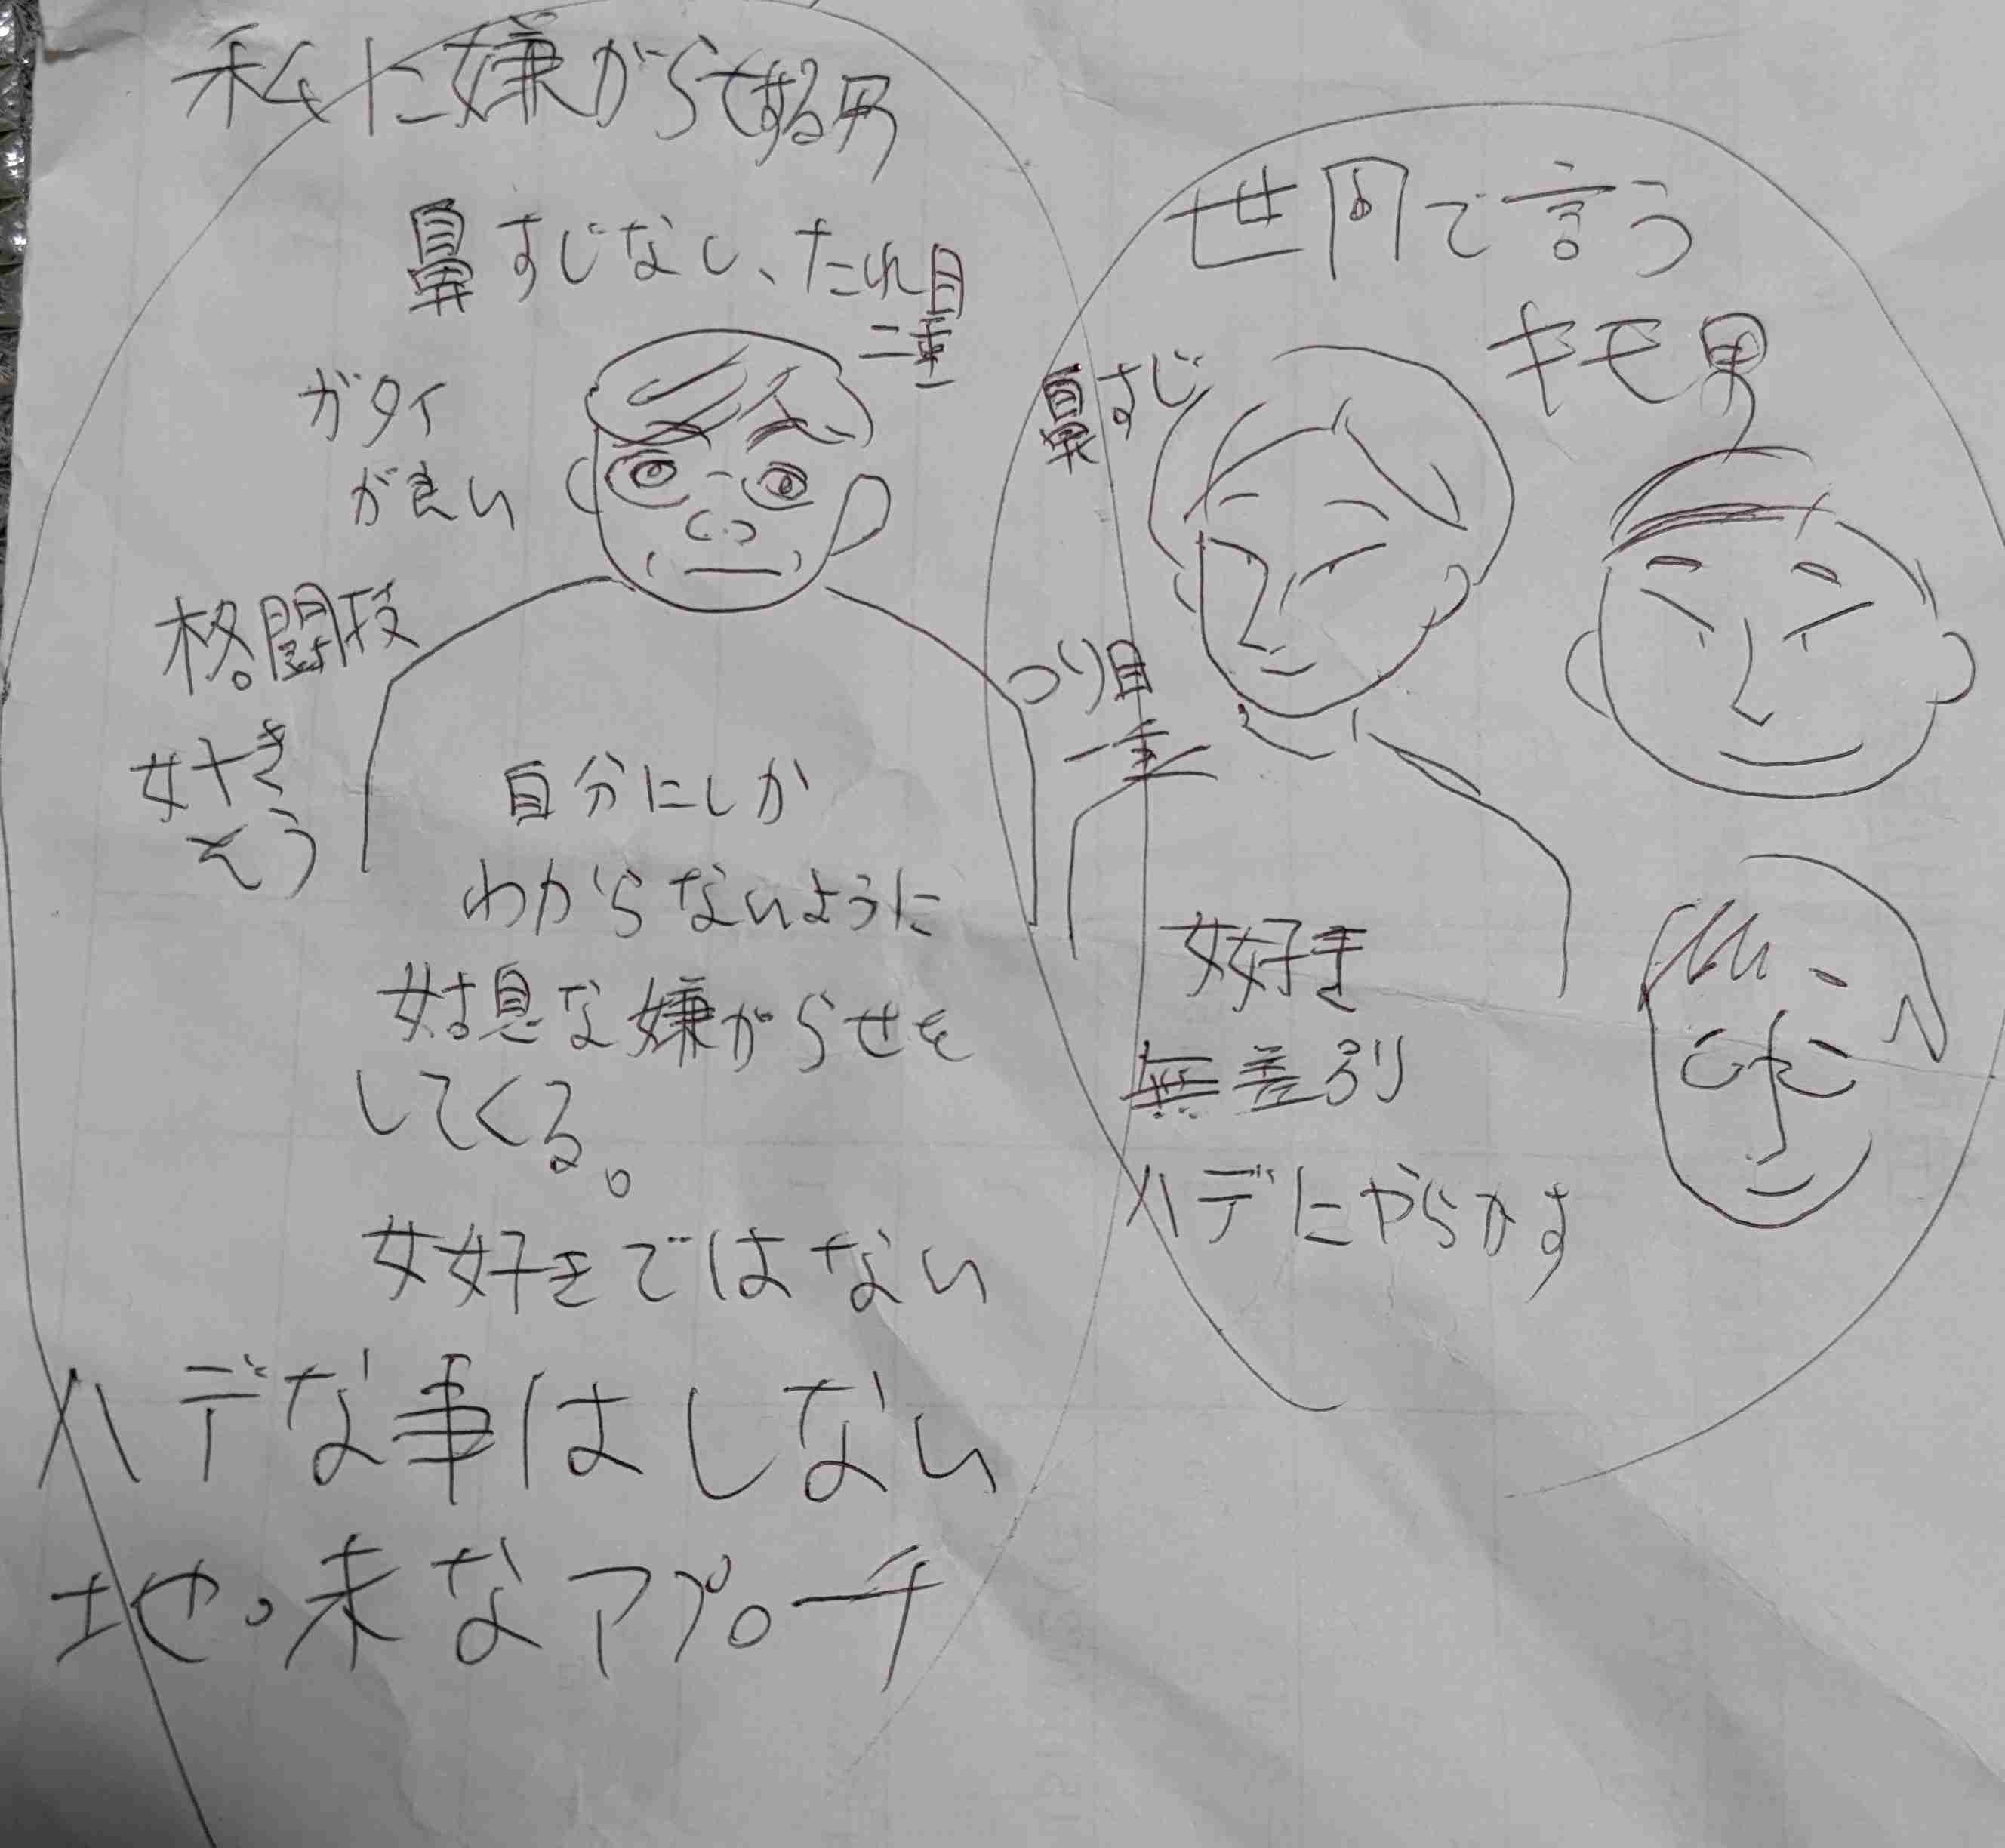 私に嫌がらせする男
鼻すじなし、たれ目
二重
ガタイ
が良い
格闘技
好き
そう
自分にしか
わからないように
姑息な嫌がらせを
してくる。
女好きではない
ハデな事はしない
地味なアプローチ
世間で言う
キモ男
鼻すじ
つり目
一重
女好き
無差別
ハデにやらかす